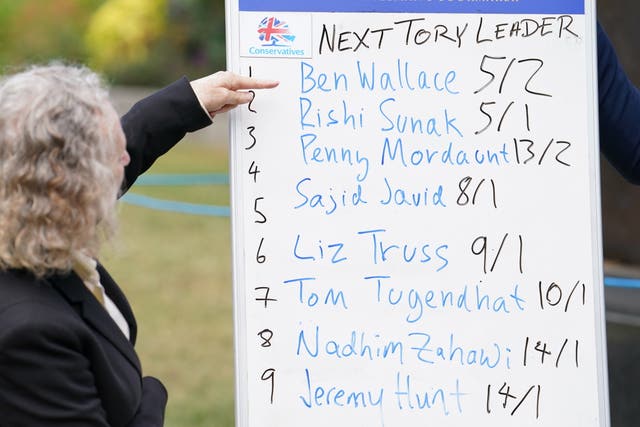 Conservatives
NEXT TORY LEADER
1 Ben Wallace 5/2
2 Rishi Sunak 5/1
3 Penny Mordaunt 13/2
4 Sajid Javid 8/1
5
6 Liz Truss 9/1
7 Tom Tugendhat 10/1
8 Nadhim Zahawi 14/1
9 Jeremy Hunt 14/1